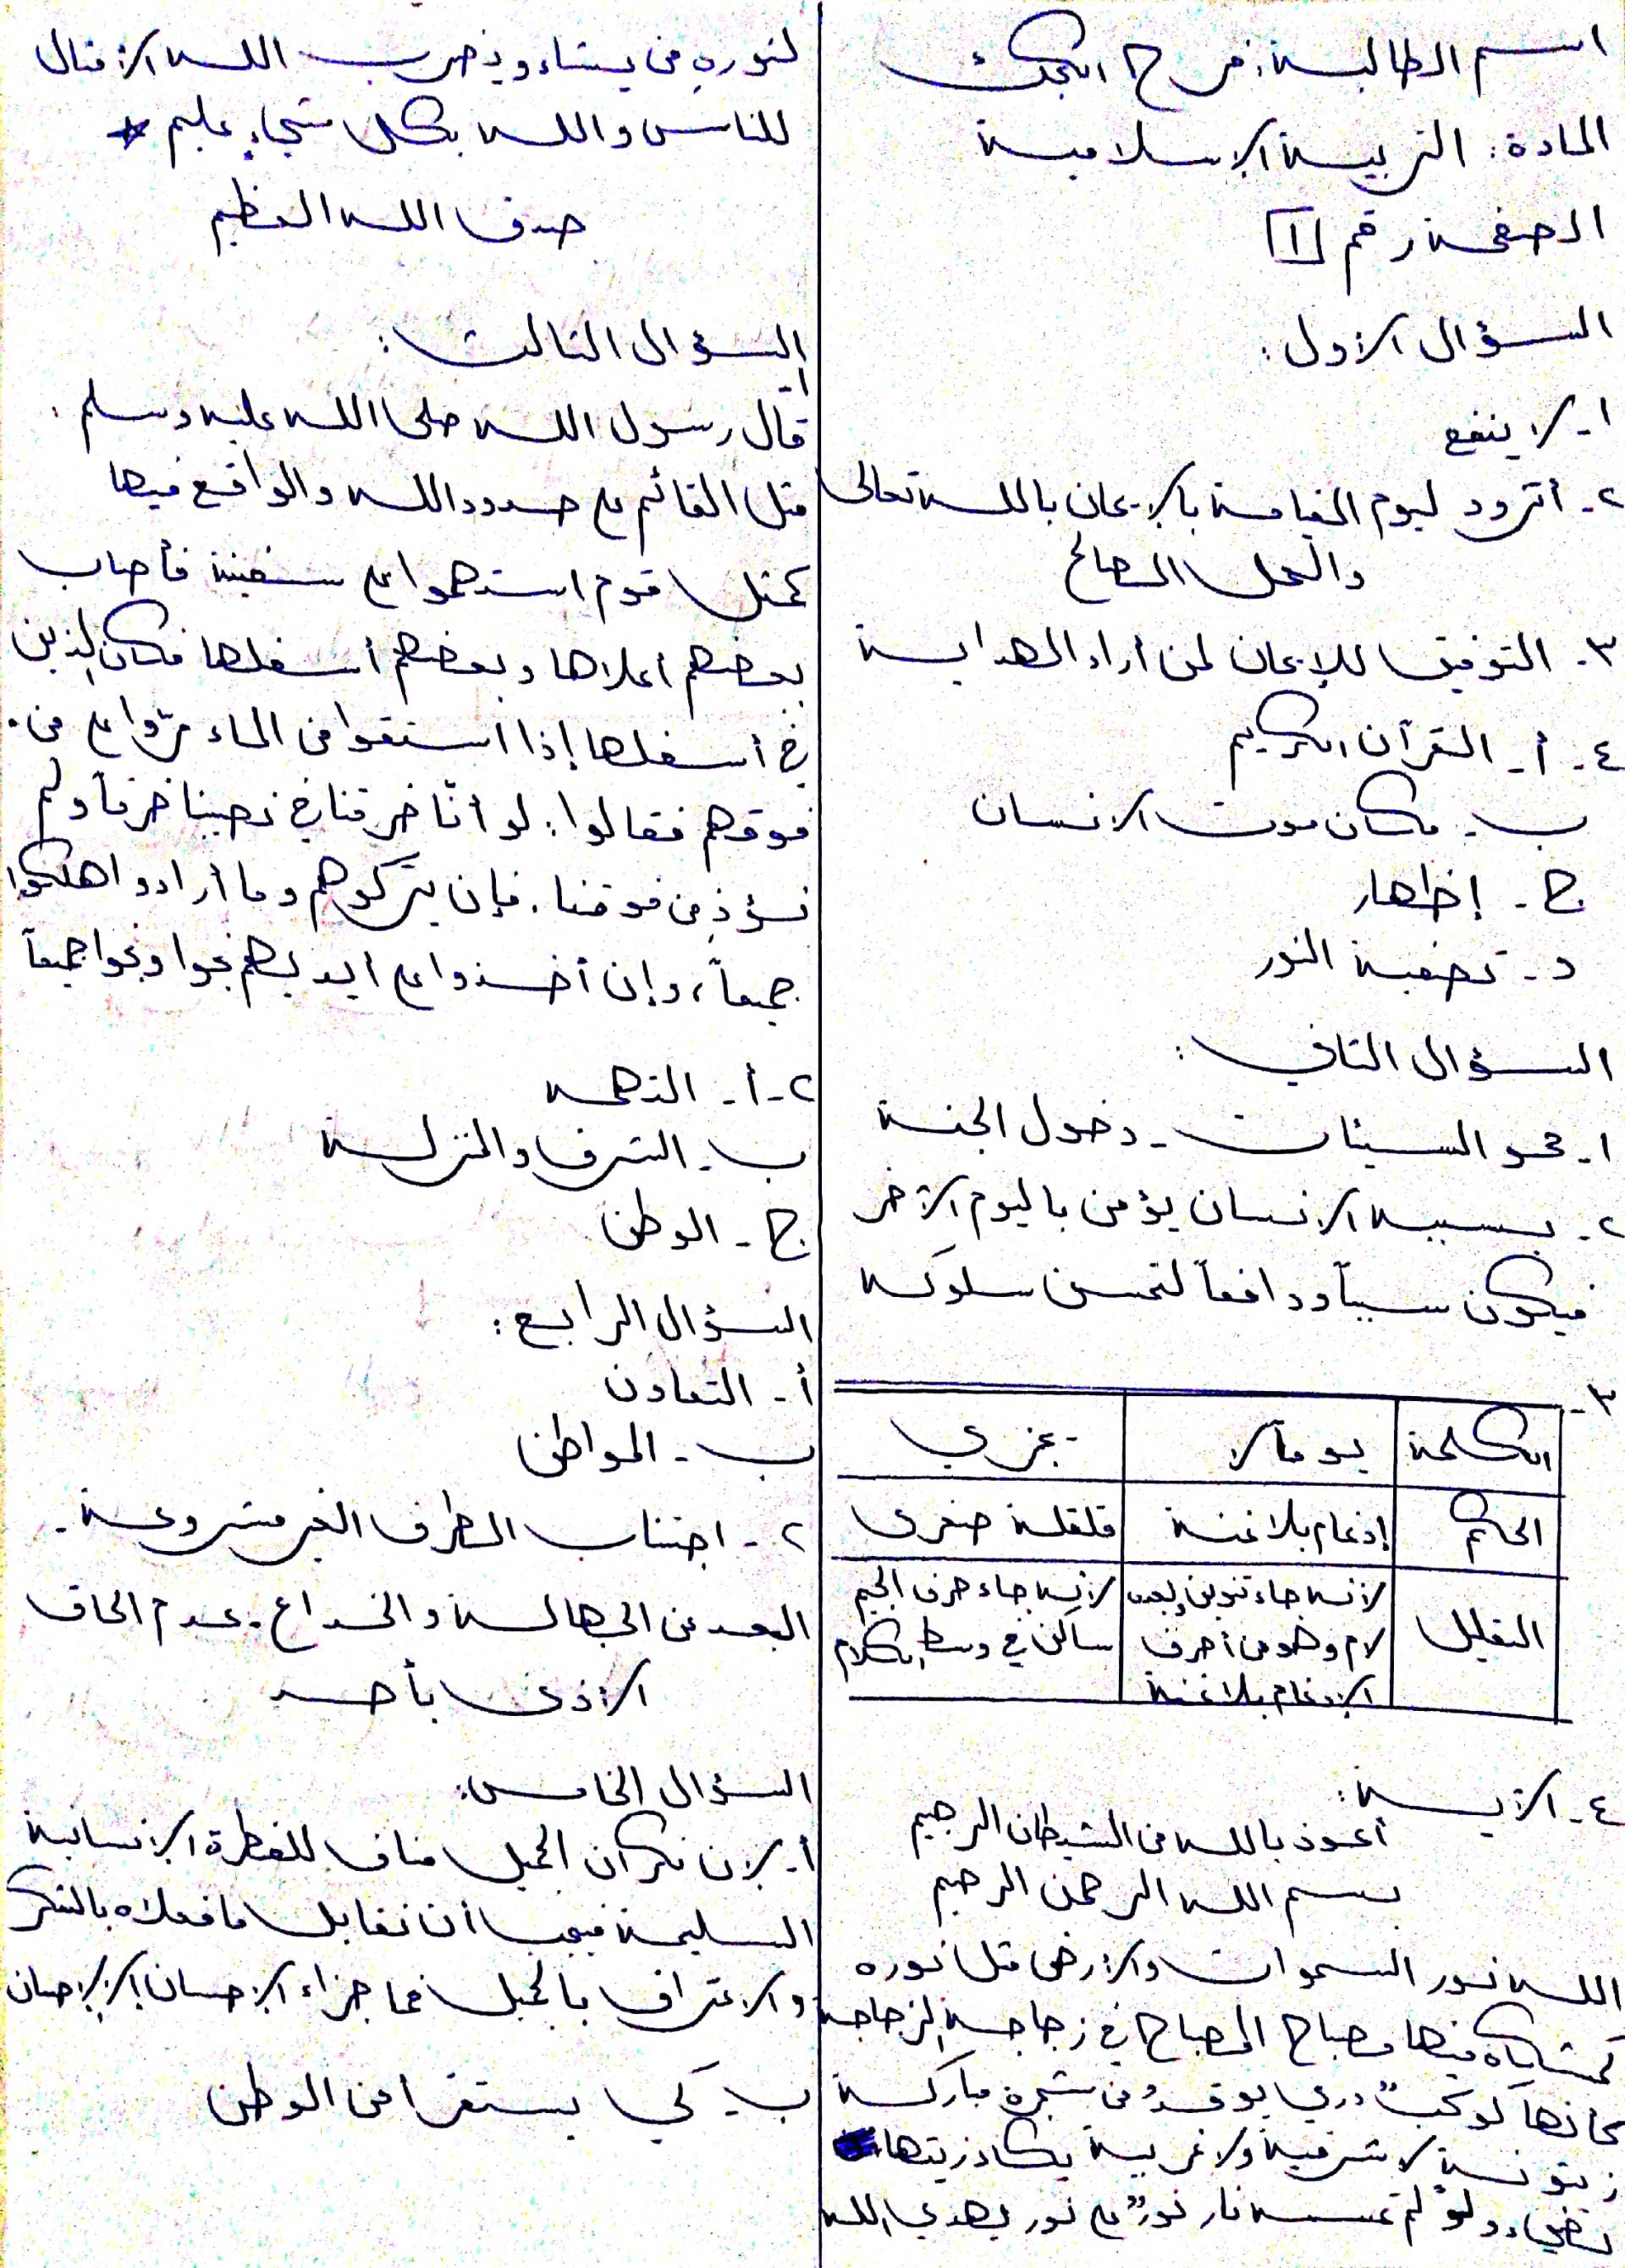 اسم الطالبة: فرح
المادة: التربية الإسلامية
الصفحة رقم ١
السؤال الأول:
١- لا ينفع
٢- أتزود ليوم القيامة بالإيمان بالله تعالى
والعمل الصالح
٣- التوفيق للإيمان لمن أراد الهداية
٤- أ- القرآن الكريم
ب- مكان موت الانسان
ج- إظهار
د- تصفية النور
السؤال الثاني:
١- محو السيئات - دخول الجنة
٢- بسببه الانسان يؤمن باليوم الآخر
فيكون سبباً ودافعاً لتحسن سلوكه
٣-
الكلمة يوماً لا تجزي
الحكم إدغام بلا غنة قلقلة صغرى
التعليل لأنه جاء تنوين وبعده لأنه جاء حرف الجيم
لام وهو من أحرف ساكن في وسط الكلام
الإدغام بلا غنة
٤- الآية:
أعوذ بالله من الشيطان الرجيم
بسم الله الرحمن الرحيم
الله نور السموات والأرض مثل نوره
كمشكاة فيها مصباح المصباح في زجاجة الزجاجة
كأنها كوكبٌ دري يوقدُ من شجرة مباركة
زيتونة لا شرقية ولا غربية يكاد زيتها
يضيء ولو لم تمسسه نار نورٌ على نور يهدي الله
لنوره من يشاء ويضرب الله الأمثال
للناس والله بكل شيء عليم *
صدق الله العظيم
السؤال الثالث:
١-
قال رسول الله صلى الله عليه وسلم:
مثل القائم على حدود الله والواقع فيها
كمثل قوم استهموا على سفينة فأصاب
بعضهم أعلاها وبعضهم أسفلها فكان الذين
في أسفلها إذا استقوا من الماء مرّوا على من
فوقهم فقالوا: لو أنّا خرقنا في نصيبنا خرقاً ولم
نؤذِ من فوقنا. فإن يتركوهم وما أرادوا هلكوا
جميعاً، وإن أخذوا على أيديهم نجوا ونجوا جميعاً
٢- أ- التهمه
ب- الشرف والمنزلة
ج- الوطن
السؤال الرابع:
أ- التعاون
ب- المواطن
٢- اجتناب الطرق الغير مشروعة -
البعد عن الجهالة والخداع - عدم الحاق
الأذى بأحد
السؤال الخامس:
أ- لان نكران الجميل مناف للفطرة الإنسانية
السليمة فيجب أن نقابل ما فعلاه بالشكر
والاعتراف بالجميل فما جزاء الإحسان إلا الإحسان
ب- كي يستفزا من الوطن